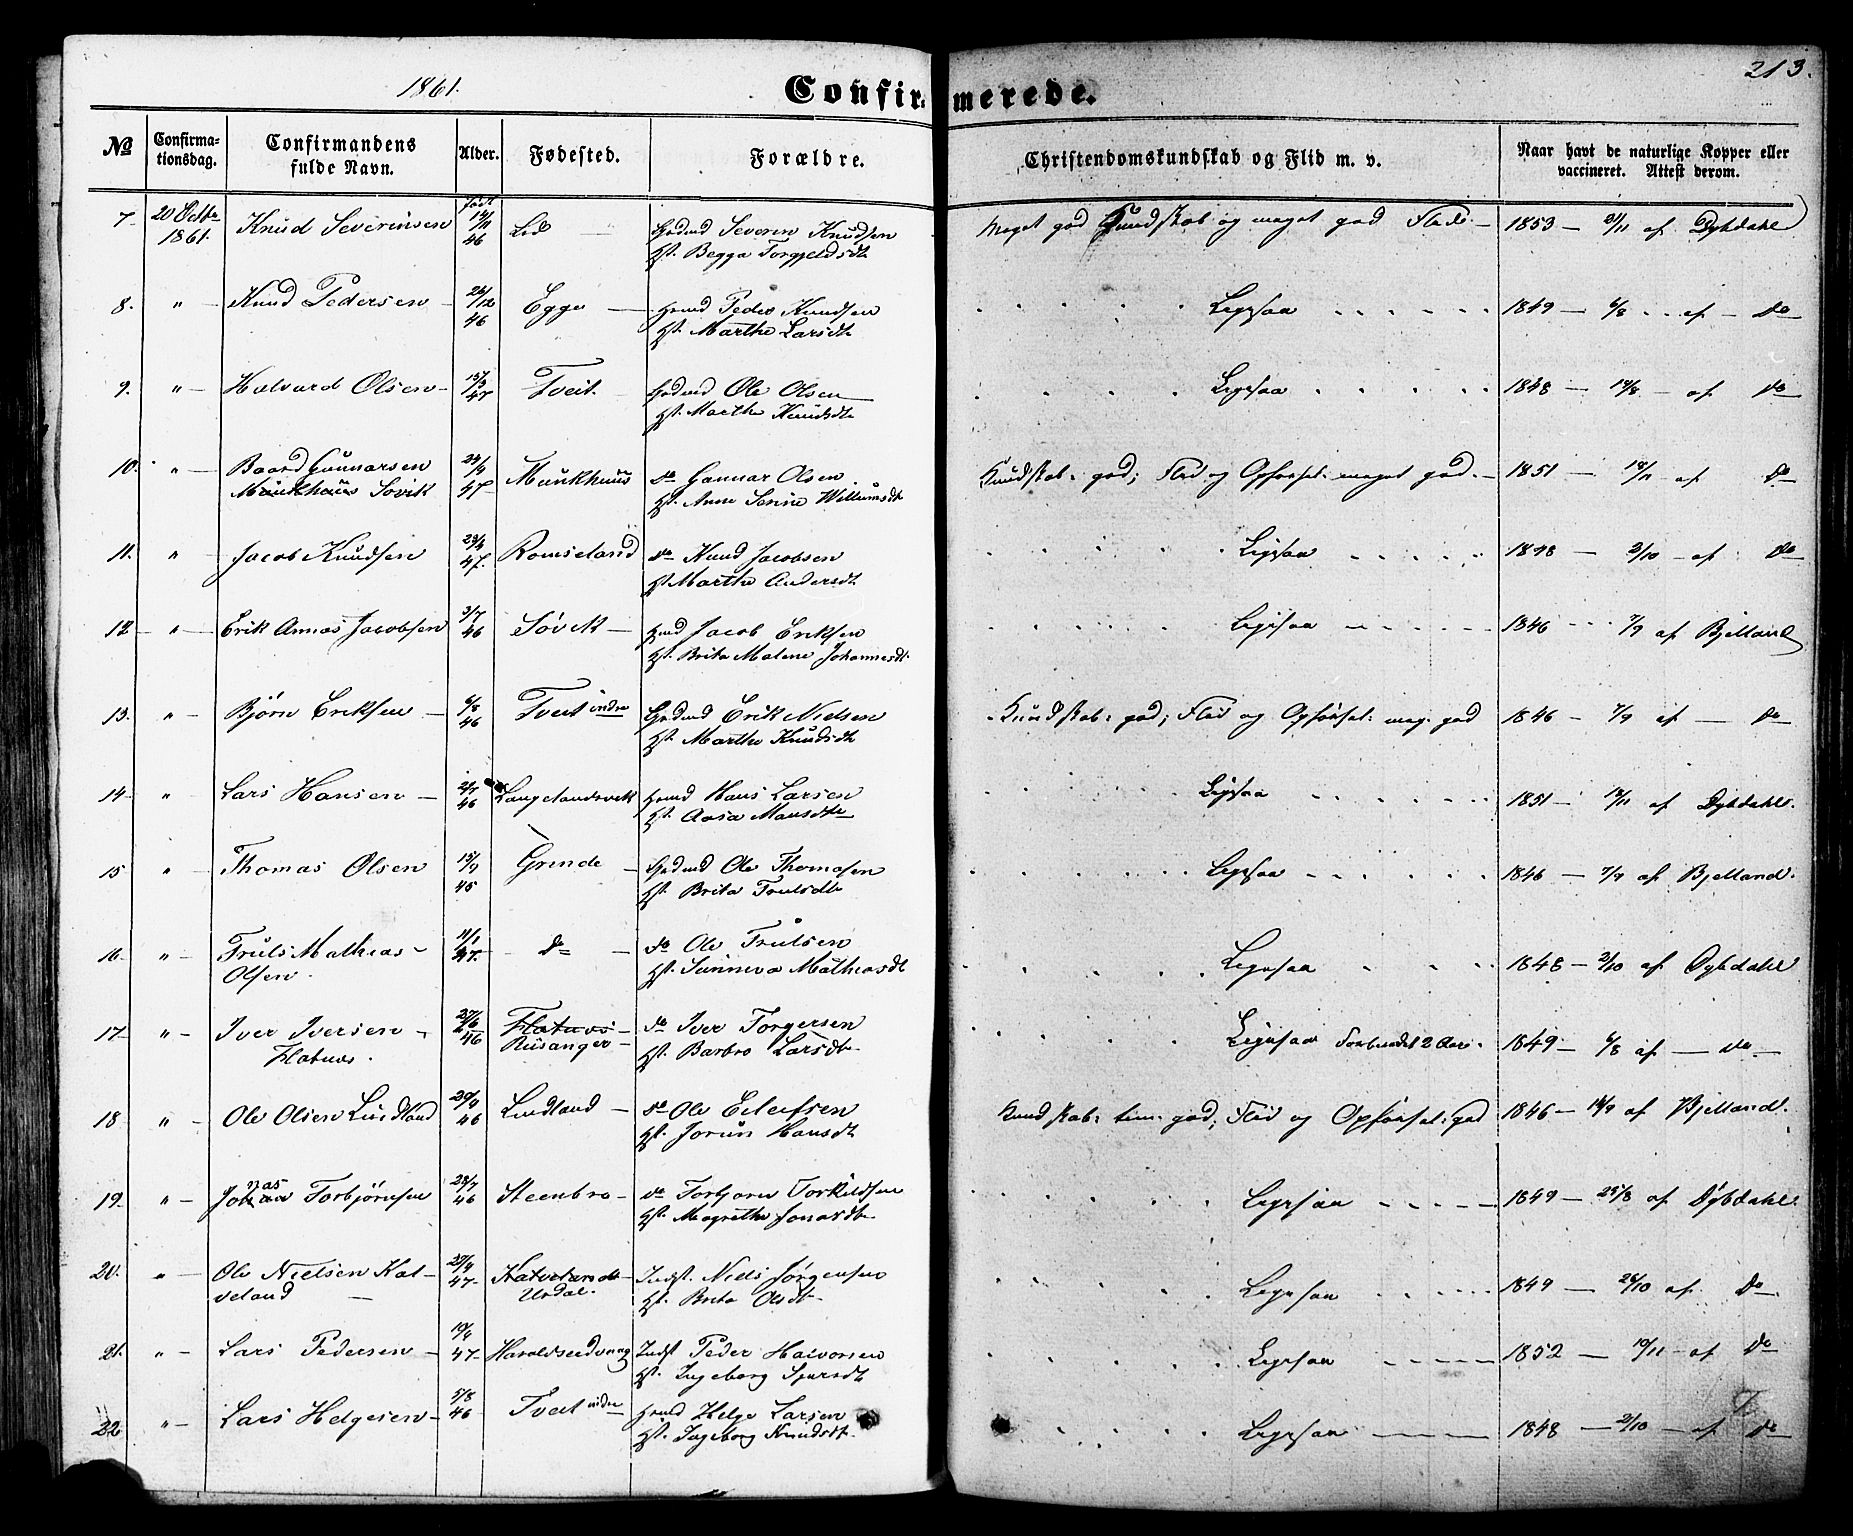 1861.
Confirmerede.
213.
No
Confirmationsdag.
Confirmandens fulde Navn.
Alder.
Fødested.
Forældre.
Christendomskundskab og Flid m. v.
Naar havt de naturlige Kopper eller vaccineret. Attest derom.
7. 20 Octbr 1861. Knud Severinsen født 14/11 46 Lid Severin Knudsen
Begga Torgjeldsdt
Meget god Kundskab og meget god Flid 1853 – 21/11 af Dybdahl
8. " Knud Pedersen 26/12 46 Egge Peder Knudsen
Marthe Larsdt
Ligesaa 1849 – 6/8 af Do
9. " Halvard Olsen 47 Tveit Ole Olsen
Marthe Knudsdt
Ligesaa 1848 – af Do
10. " Baard Gunnarsen 47 Munkhuus Do Gunnar Olsen
Munkhuus Søvik Anne Serine Willumsdt
Kundskab: god; Flid og Opførsel: meget god. 1851 – 18/11 af Do
11. " Jacob Knudsen 23/4 47. Romseland Do Knud Jacobsen
Marthe Andersdt
Ligesaa 1848 – 2/10 af Do
12 " Erik Annas Jacobsen 3/7 46 Søvik Jacob Eriksen
Brita Malene Johannesdt
Ligesaa 1846 7/9 af Bjelland
13. " Bjørn Eriksen 6/8 46 Tveit indre Erik Nielsen
Marthe Knudsdt
Kundskab: god; Flid og Opførsel: meg. god 1846 – 7/9 af Do
14. " Lars Hansen 46 Langelandsvik Hans Larsen
Aasa Mansdtr
Ligesaa 1851 – 18/11 af Dybdahl.
15 " Thomas Olsen 45 Grinde Ole Thomasen
Brita Trulsdt
Ligesaa 1846 – 7/9 af Bjelland.
16. " Truls Mathias 11/1 47. Do Do Ole Trulsen
Olsen. Sunneva Mathiasdt
Ligesaa 1848 – 2/10 af Dybdahl
17. " Iver Iversen 46 Flatnæs Do Iver Torgersen
Flatnæs. Risanger Barbro Larsdt
Ligesaa Forberedt 2 Aar. 1849 – 6/8 af Do
18 " Ole Olsen Lindland 46 Lindland Do Ole Eilefsen
Jorun Hansdt
Kundskab: tem: god; Flid og Opførsel: god 1846 – 14/9 af Bjelland.
19. " Johan nas Torbjørnsen 28/7 46 Steenbro Do Torbjørn Torkildsen
Magrethe Jonasdt
Ligesaa 1849 – 25/8 af Dybdahl
20. " Ole Nielsen Kat- 27/4 47 Katveland Indst. Niels Jørgensen
veland Urdal. Brita Olsdt
Ligesaa 1849 26/10 af Do
21. " Lars Pedersen 19/4 47 Haraldseidvaag Indst Peder Halvorsen
Ingeborg Sjursdt
Ligesaa 1852 – 19/11 af Do
22 " Lars Helgesen 5/8 46 Tveit indre Helge Larsen
Ingeborg Knudsdt.
Ligesaa 1848 – 2/10 – af Do